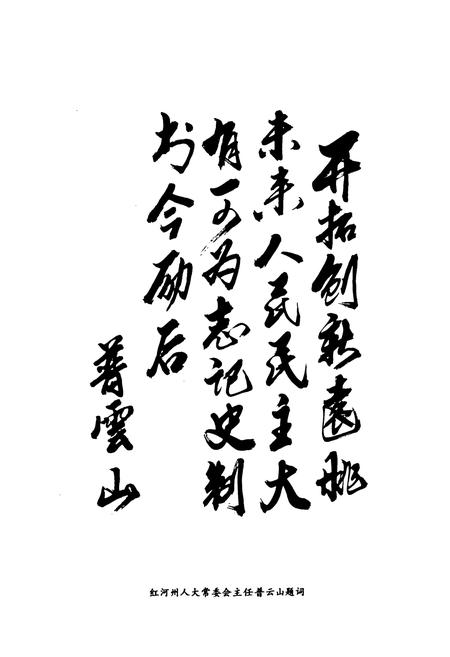 开拓创新远眺
未来人民民主大
有可为志记史制
今励后
普雲山
红河州人大常委会主任普云山题词